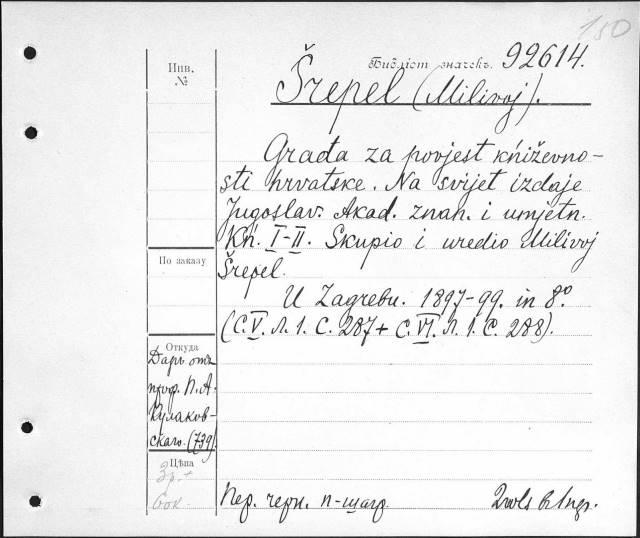 150
Библіот. значекъ. 92614.
Šrepel (Milivoj).
Инв.
№
Građa za povjest kńiževno-
sti hrvatske. Na svijet izdaje
Jugoslav. Akad. znan. i umjetn.
Kń. I-II. Skupio i uredio Milivoj
Šrepel.
U Zagrebu. 1897-99. in 8º
(С.V. Л. 1. С. 287 + С.VI. Л. 1. С. 288).
По заказу
Откуда
Даръ отъ
проф. П. А.
Кулаков-
скаго. (739).
Цѣна
Пер. черн. п-шагр.
2 vols в 1